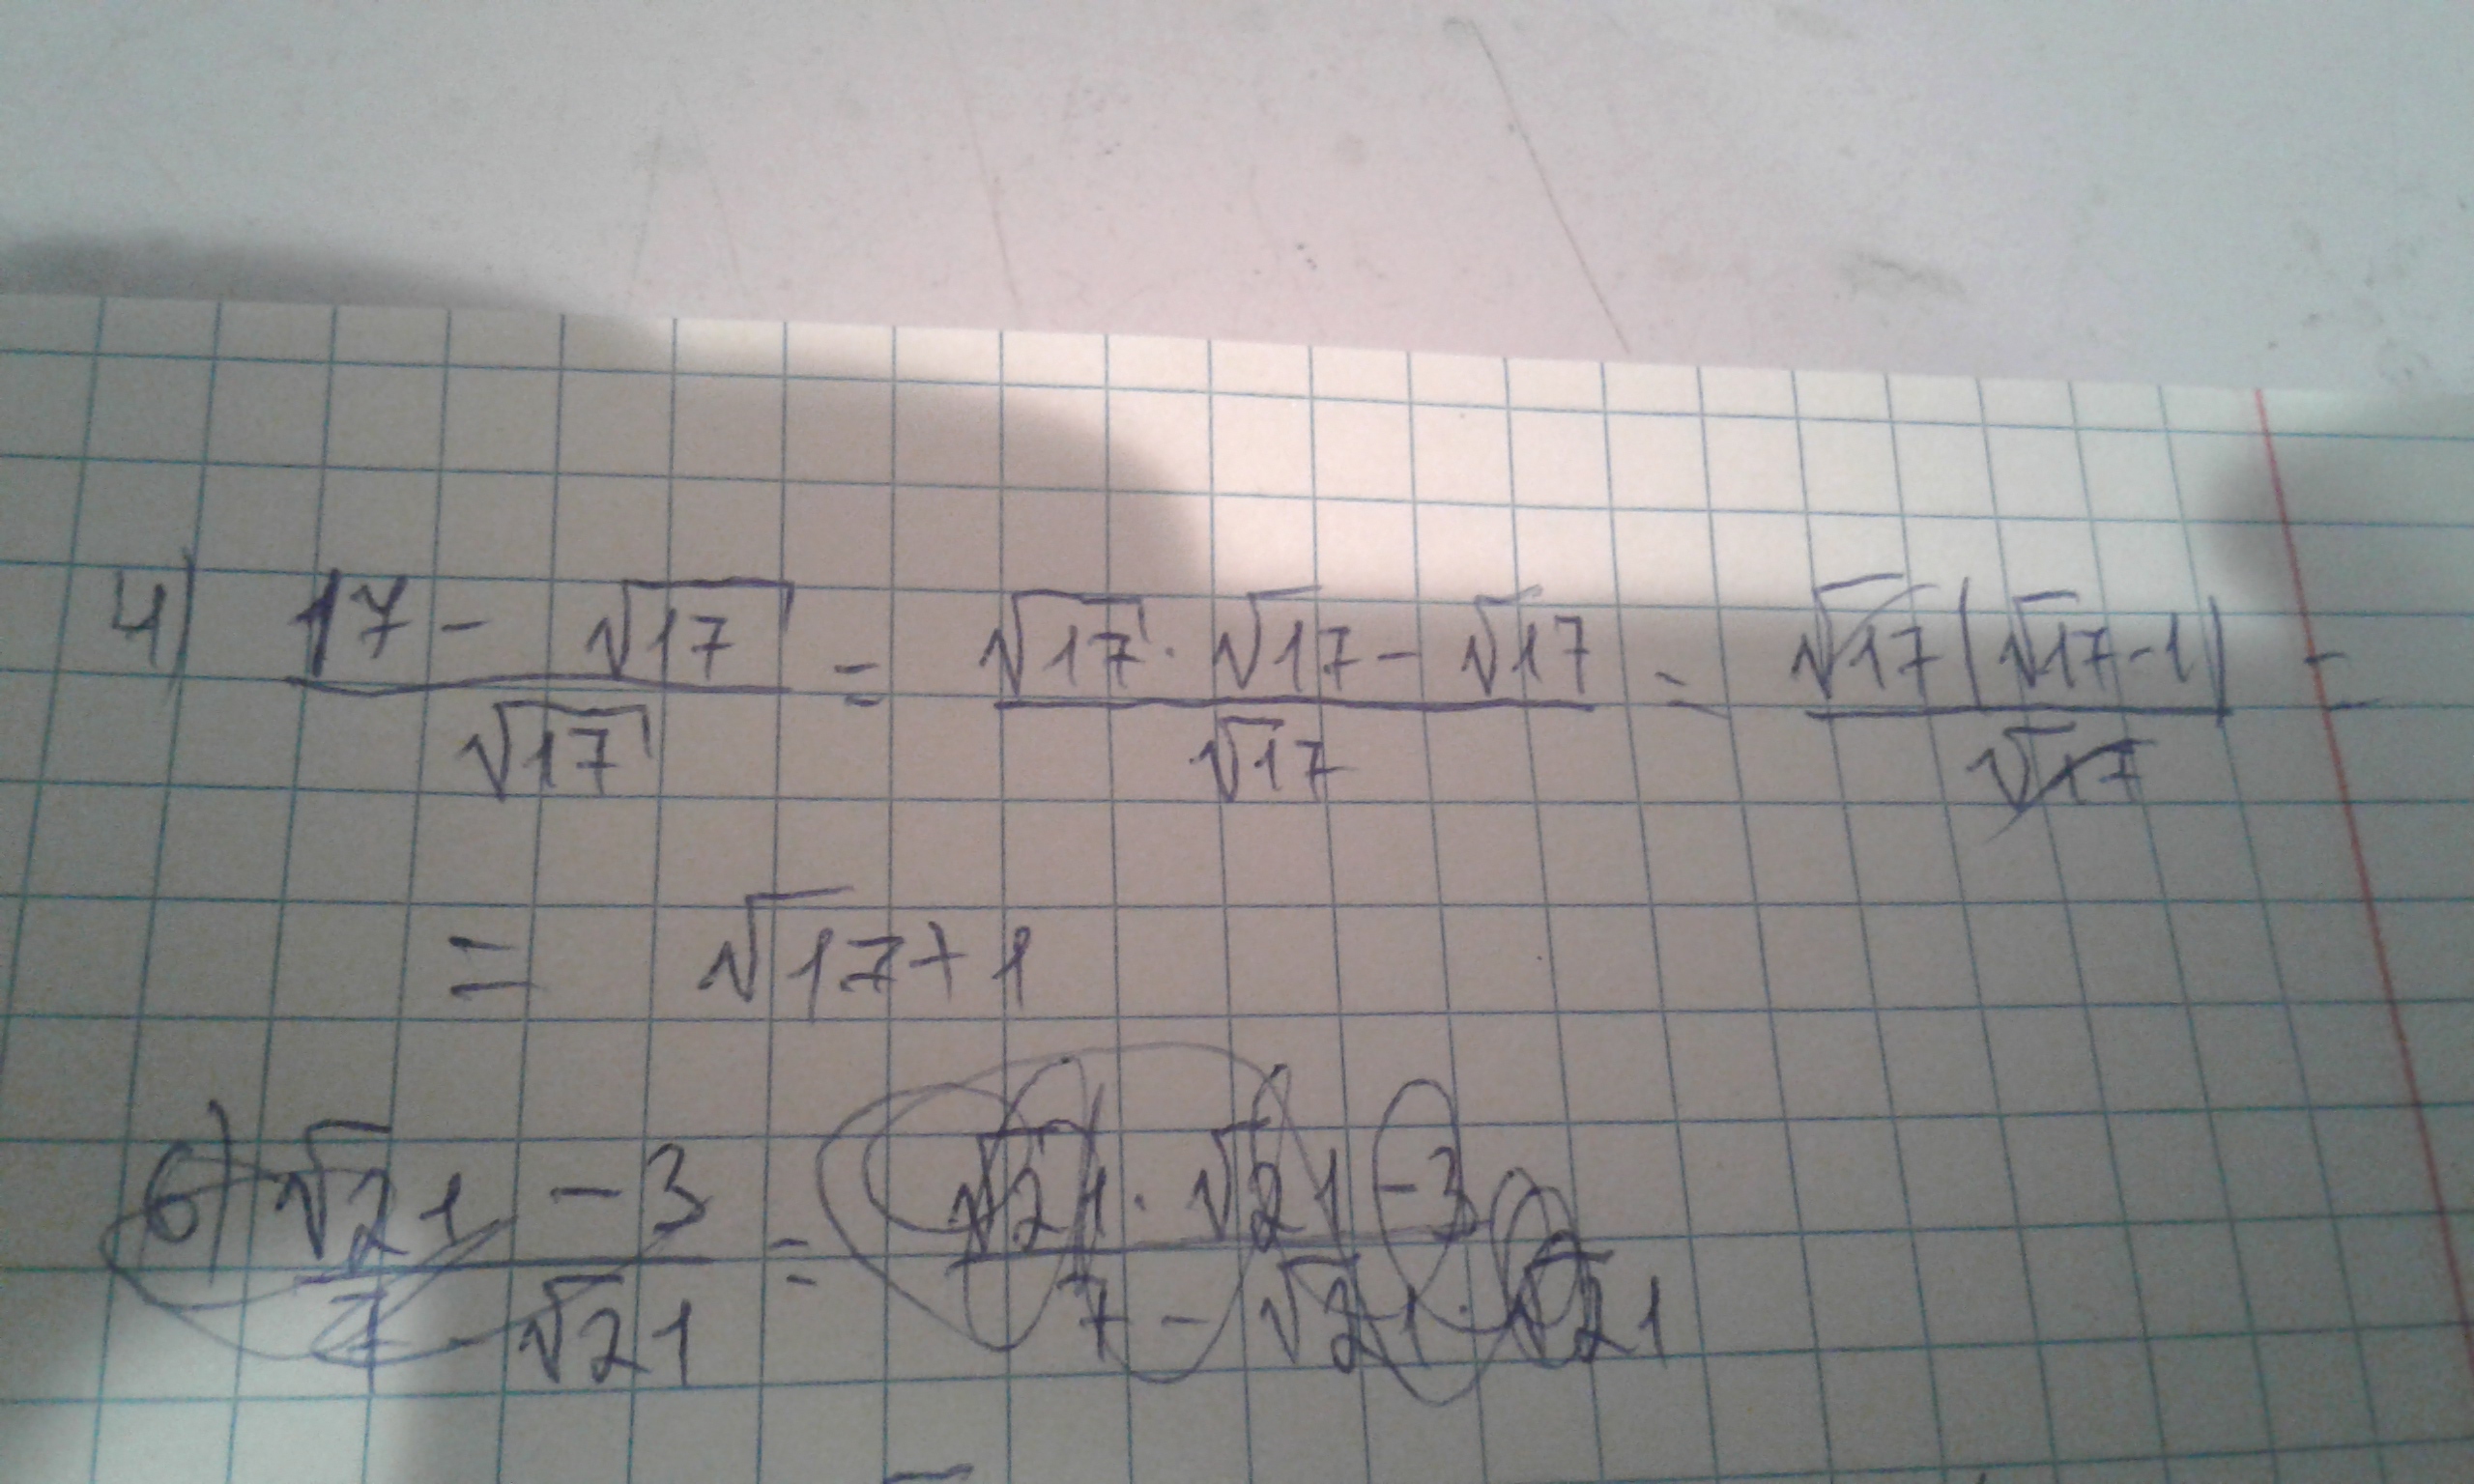 4) (17 - √17)/√17 = (√17 · √17 - √17)/√17 = √17(√17-1)/√17 =
= √17+1
6) (√21 - 3)/(7 - √21) = (√21 · √21 - 3)/(7 - √21 · √21)